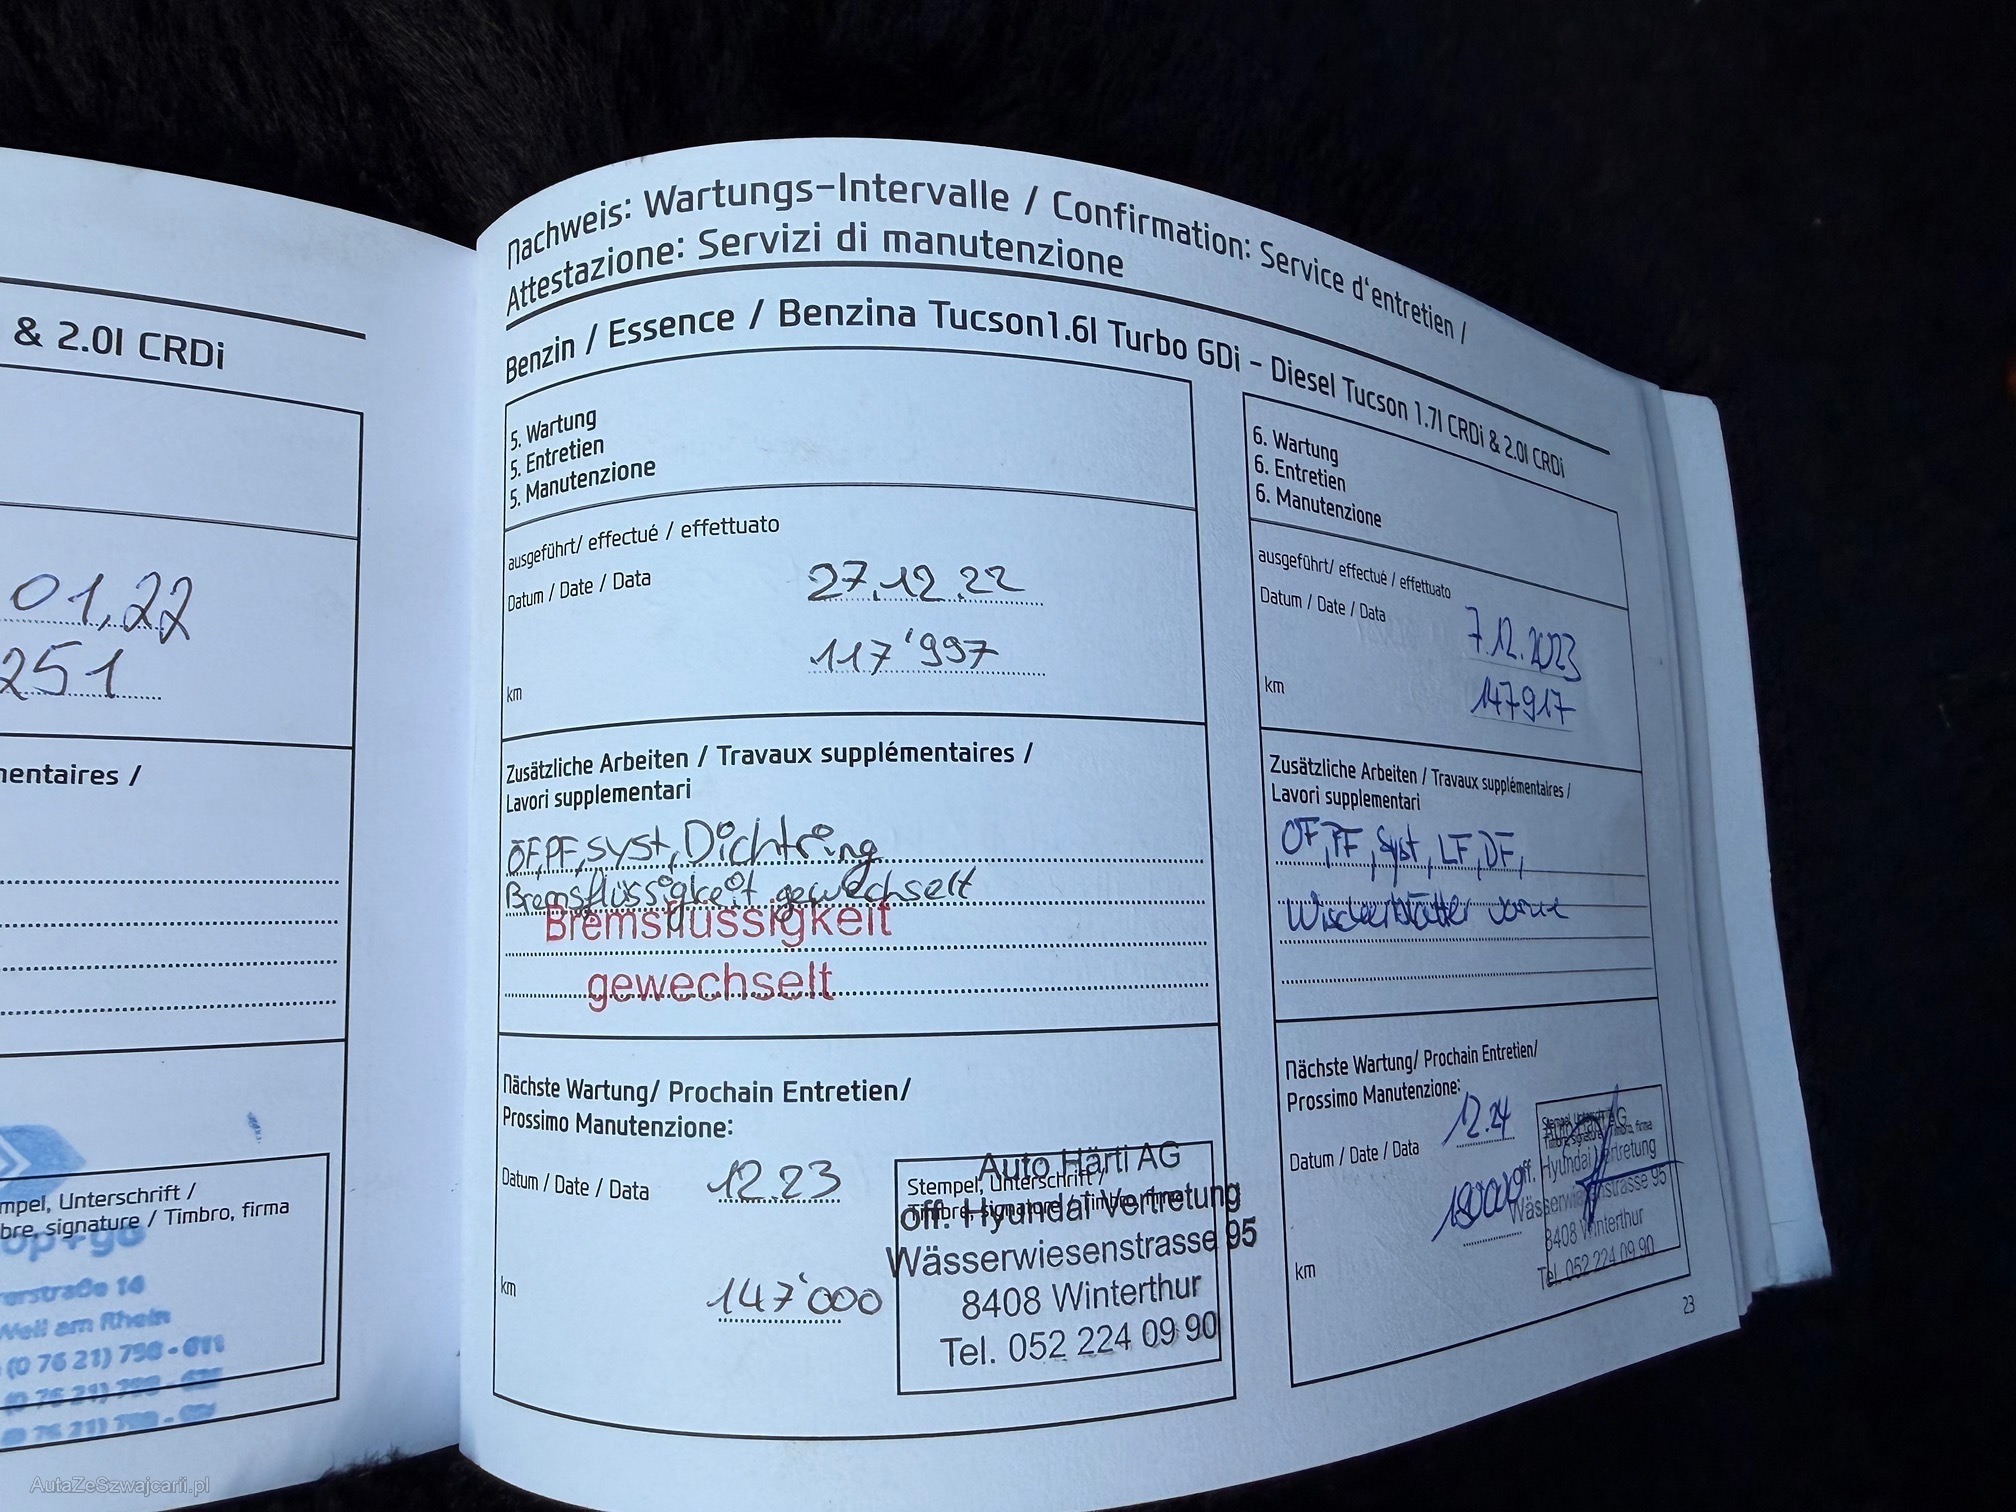 & 2.0l CRDi
01,22
251
mentaires /
Stempel, Unterschrift /
Timbre, signature / Timbro, firma
14
Weil am Rhein
(0 76 21) 798 - 611
Nachweis: Wartungs-Intervalle / Confirmation: Service d'entretien /
Attestazione: Servizi di manutenzione
Benzin / Essence / Benzina Tucson1.6l Turbo GDi - Diesel Tucson 1.7l CRDi & 2.0l CRDi
5. Wartung
5. Entretien
5. Manutenzione
ausgeführt/ effectué / effettuato
Datum / Date / Data
27.12.22
117'997
km
Zusätzliche Arbeiten / Travaux supplémentaires /
Lavori supplementari
ÖF,PF,syst,Dichtring
Bremsflüssigkeit gewechselt
Bremsflüssigkeit
gewechselt
Nächste Wartung/ Prochain Entretien/
Prossimo Manutenzione:
Datum / Date / Data
12.23
km
147'000
Stempel, Unterschrift /
Timbre, signature / Timbro, firma
Auto Härti AG
off. Hyundai Vertretung
Wässerwiesenstrasse 95
8408 Winterthur
Tel. 052 224 09 90
6. Wartung
6. Entretien
6. Manutenzione
ausgeführt/ effectué / effettuato
Datum / Date / Data
7.12.2023
km
147917
Zusätzliche Arbeiten / Travaux supplémentaires /
Lavori supplementari
ÖF,PF,Syst,LF,DF,
Wischerblätter vorne
Nächste Wartung/ Prochain Entretien/
Prossimo Manutenzione:
Datum / Date / Data
12.24
km
Stempel, Unterschrift /
Timbre, signature / Timbro, firma
Auto Härti AG
off. Hyundai Vertretung
Wässerwiesenstrasse 95
8408 Winterthur
Tel. 052 224 09 90
23
AutaZeSzwajcarii.pl